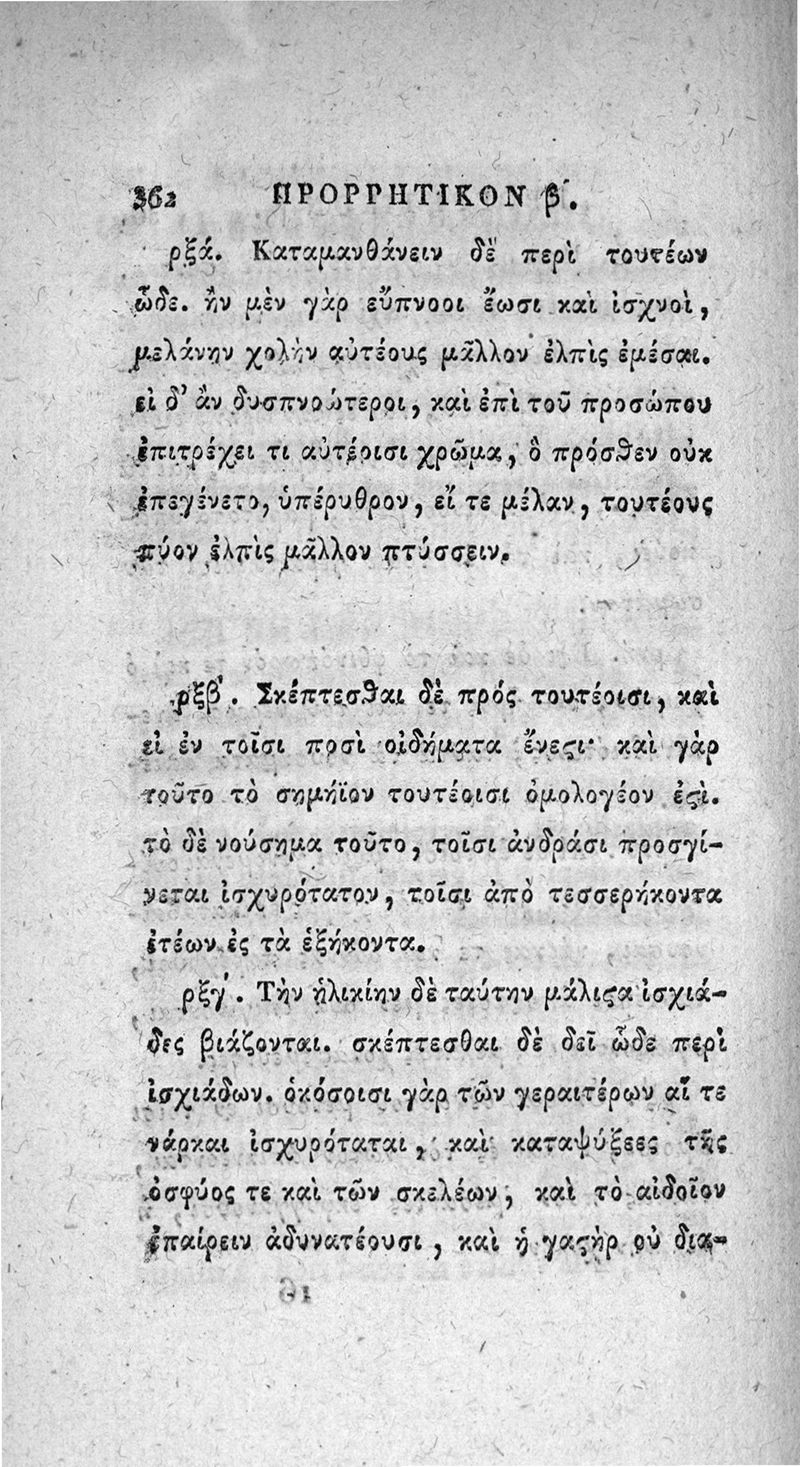 362 ΠΡΟΡΡΗΤΙΚΟΝ β΄.
ρξά. Καταμανθάνειν δὲ περὶ τουτέων
ὧδε. ἢν μὲν γὰρ εὔπνοοι ἔωσι καὶ ἰσχνοὶ,
μελάνην χολὴν αὐτέους μᾶλλον ἐλπὶς ἐμέσαι.
εἰ δ’ ἂν δυσπνοώτεροι, καὶ ἐπὶ τοῦ προσώπου
ἐπιτρέχει τι αὐτέοισι χρῶμα, ὃ πρόσϑεν οὐκ
ἐπεγένετο, ὑπέρυθρον, εἴ τε μέλαν, τουτέους
πύον ἐλπὶς μᾶλλον πτύσσειν.
ρξβ΄. Σκέπτεσϑαι δὲ πρός τουτέοισι, καὶ
εἰ ἐν τοῖσι ποσὶ οἰδήματα ἔνεϛι· καὶ γὰρ
τοῦτο τὸ σημήϊον τουτέοισι ὁμολογέον ἐϛὶ.
τὸ δὲ νούσημα τοῦτο, τοῖσι ἀνδράσι προσγί-
νεται ἰσχυρότατον, τοῖσι ἀπὸ τεσσερήκοντα
ἐτέων ἐς τὰ ἑξήκοντα.
ρξγ΄. Τὴν ἡλικίην δὲ ταύτην μάλιϛα ἰσχιά-
δες βιάζονται. σκέπτεσθαι δὲ δεῖ ὧδε περὶ
ἰσχιάδων. ὁκόσοισι γὰρ τῶν γεραιτέρων αἵ τε
νάρκαι ἰσχυρόταται, καὶ καταψύξεες τῆς
ὀσφύος τε καὶ τῶν σκελέων, καὶ τὸ αἰδοῖον
ἐπαίρειν ἀδυνατέουσι, καὶ ἡ γαϛὴρ οὐ δια-